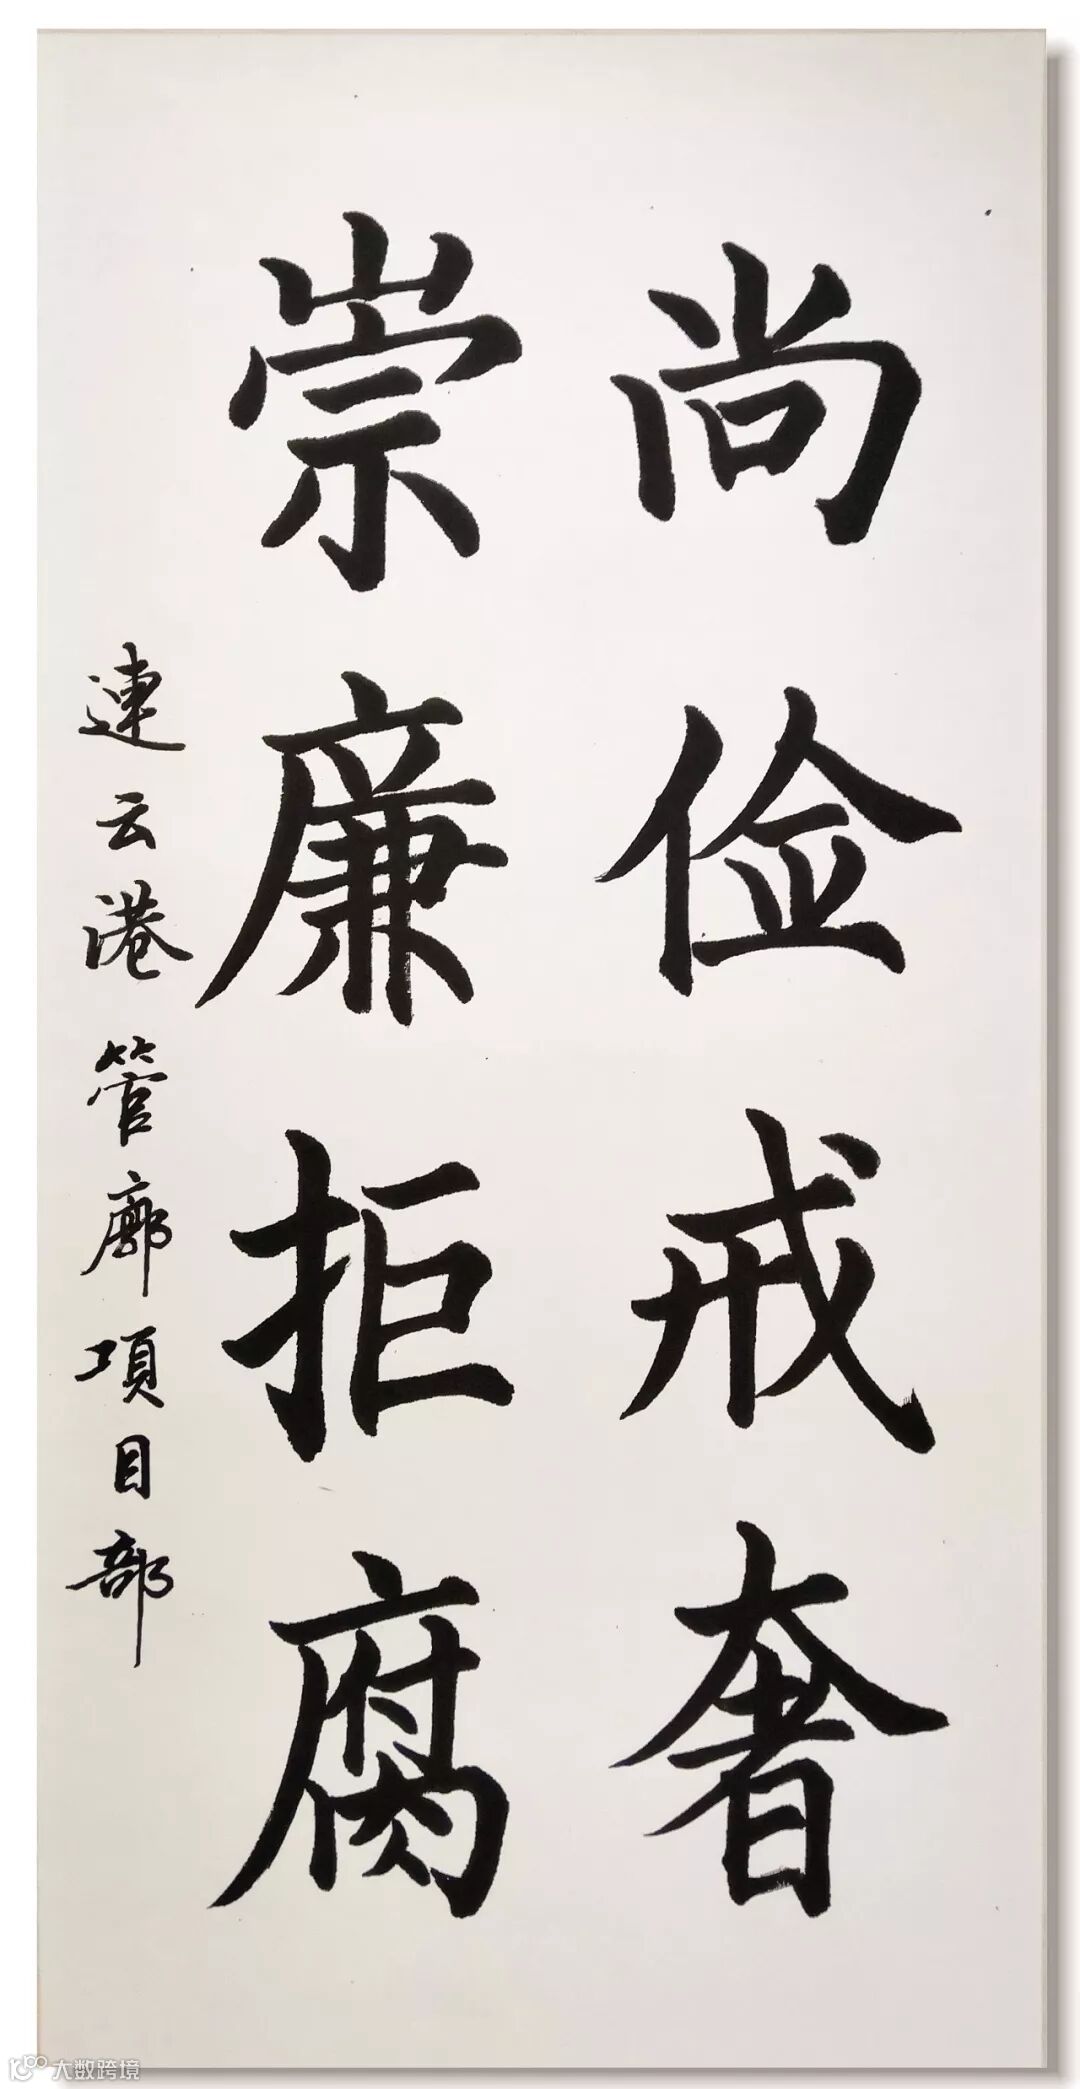 尚俭戒奢
崇廉拒腐
連云港管廊項目部
大数跨境